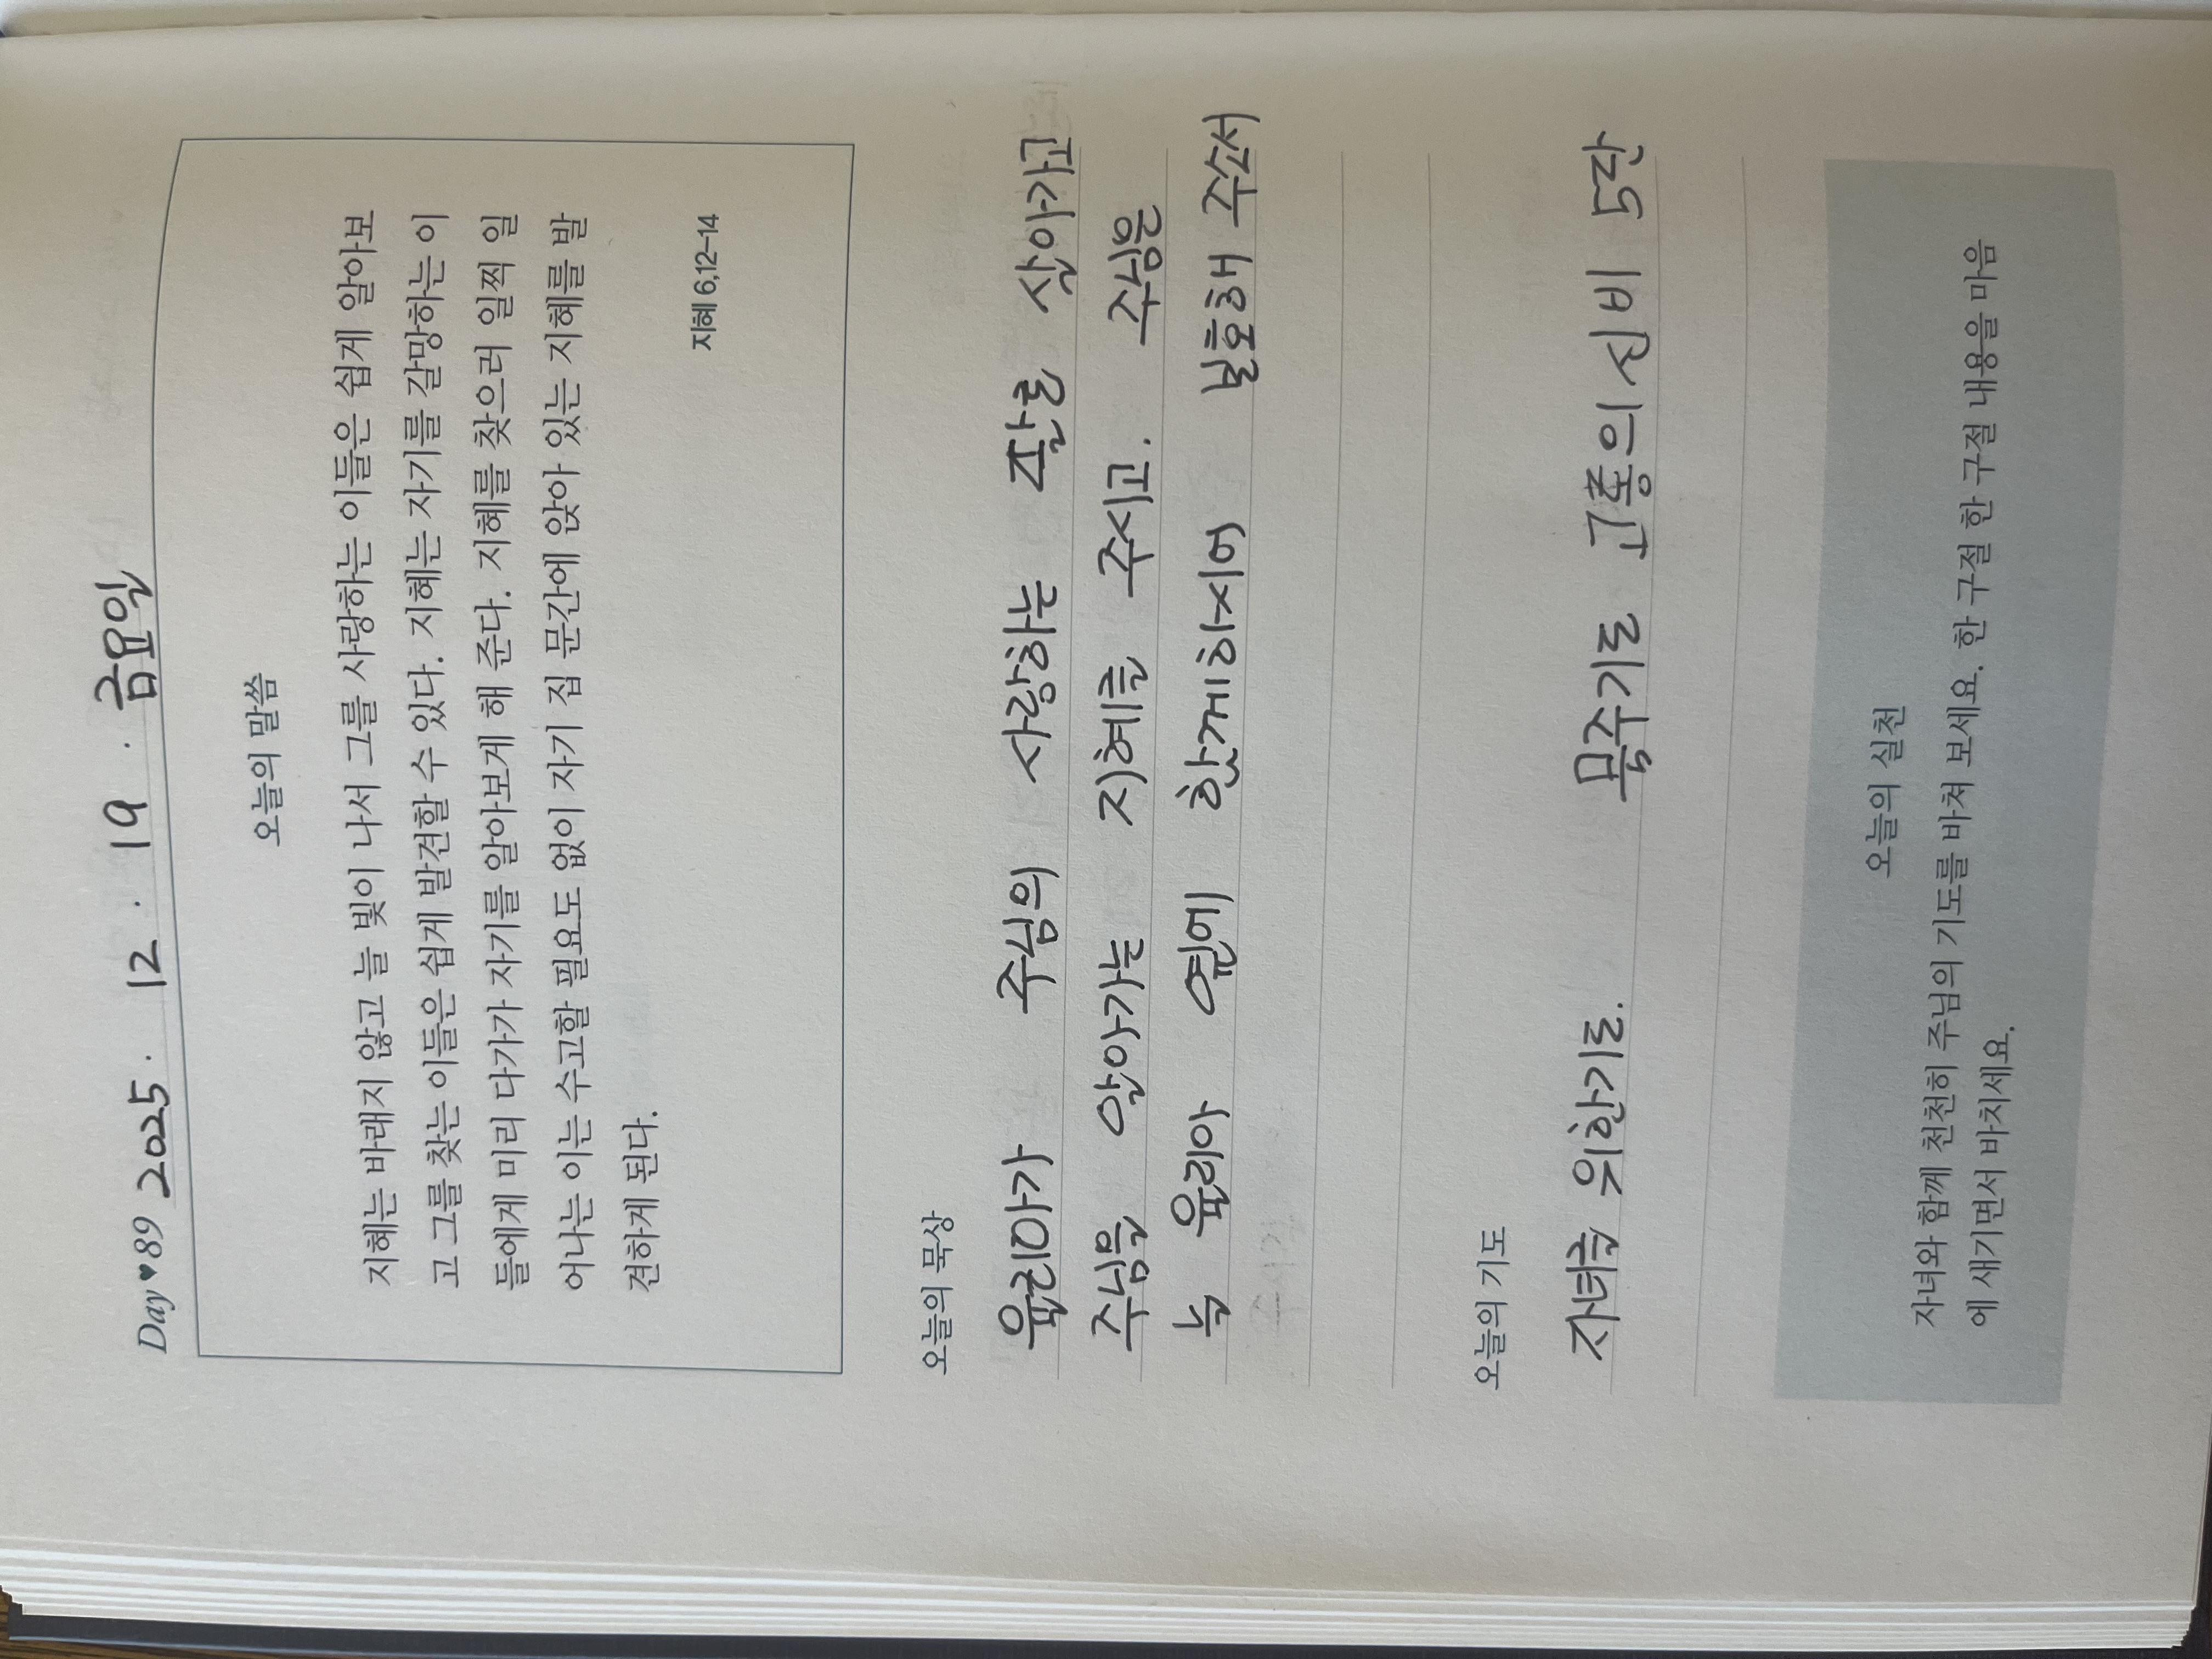 Day♥89 2025. 12. 19. 금요일
오늘의 말씀
지혜는 바래지 않고 늘 빛이 나서 그를 사랑하는 이들은 쉽게 알아보
고 그를 찾는 이들은 쉽게 발견할 수 있다. 지혜는 자기를 갈망하는 이
들에게 미리 다가가 자기를 알아보게 해 준다. 지혜를 찾으러 일찍 일
어나는 이는 수고할 필요도 없이 자기 집 문간에 앉아 있는 지혜를 발
견하게 된다.
지혜 6,12-14
오늘의 묵상
율리아가 주님의 사랑하는 딸로 살아가고
주님을 알아가는 지혜를 주시고. 주님은
늘 율리아 옆에 함께하시어 보호해 주소서
오늘의 기도
자녀를 위한기도. 묵주기도 고통의신비 5단
오늘의 실천
자녀와 함께 천천히 주님의 기도를 바쳐 보세요. 한 구절 한 구절 내용을 마음
에 새기면서 바치세요.